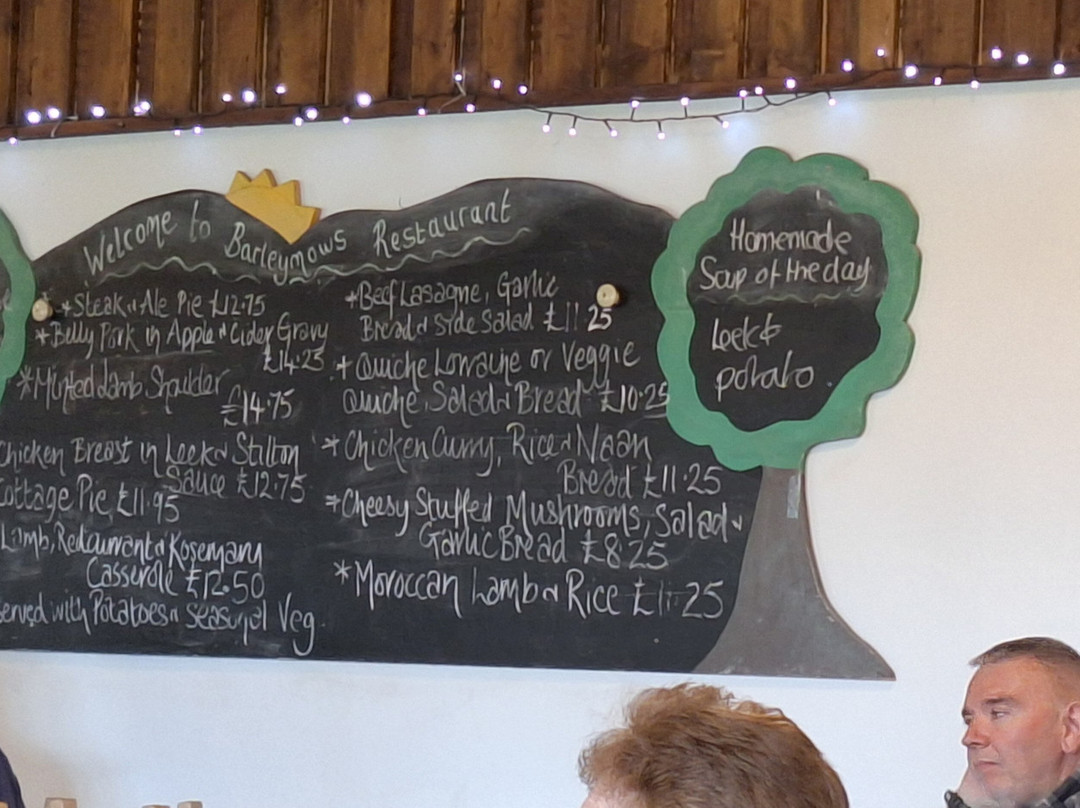 Welcome to Barleymows Restaurant
*Steak & Ale Pie £12.75
*Belly Pork in Apple & Cider Gravy
£14.25
*Minted Lamb Shoulder
£14.75
Chicken Breast in Leek & Stilton
Sauce £12.75
Cottage Pie £11.95
Lamb, Redcurrant & Rosemary
Casserole £12.50
served with Potatoes & seasonal Veg.
*Beef Lasagne, Garlic
Bread & Side Salad £11.25
*Quiche Lorraine or Veggie
Quiche, Salad & Bread £10.25
*Chicken Curry, Rice & Naan
Bread £11.25
*Cheesy Stuffed Mushrooms, Salad &
Garlic Bread £8.25
*Moroccan Lamb & Rice £11.25
Homemade
Soup of the day
Leek &
potato.